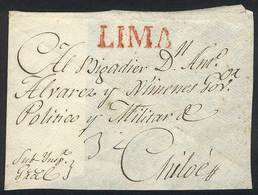 LIMA
Al Brigadier Dn. Anto.
Alvarez y Ximenes Govor.
Politico y Militar de
Chiloé